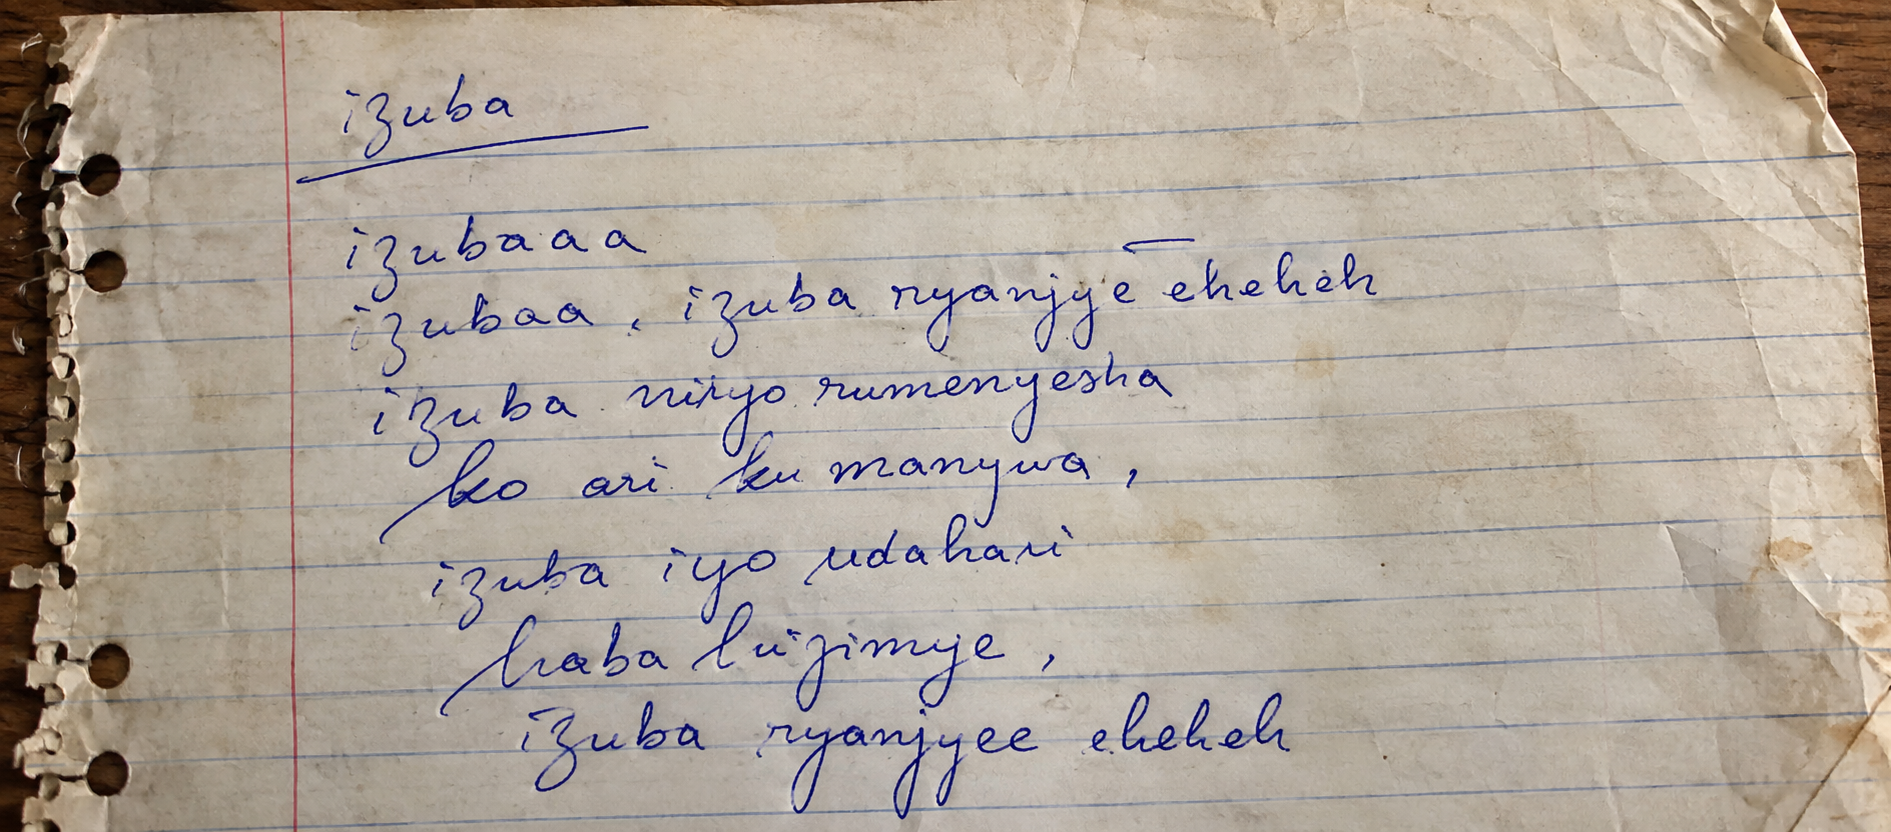 izuba
izubaaa
izubaa, izuba ryanjye eheheh
izuba niryo rumenyesha
ko ari ku manywa,
izuba iyo udahari
haba hijimye,
izuba ryanjyee eheheh